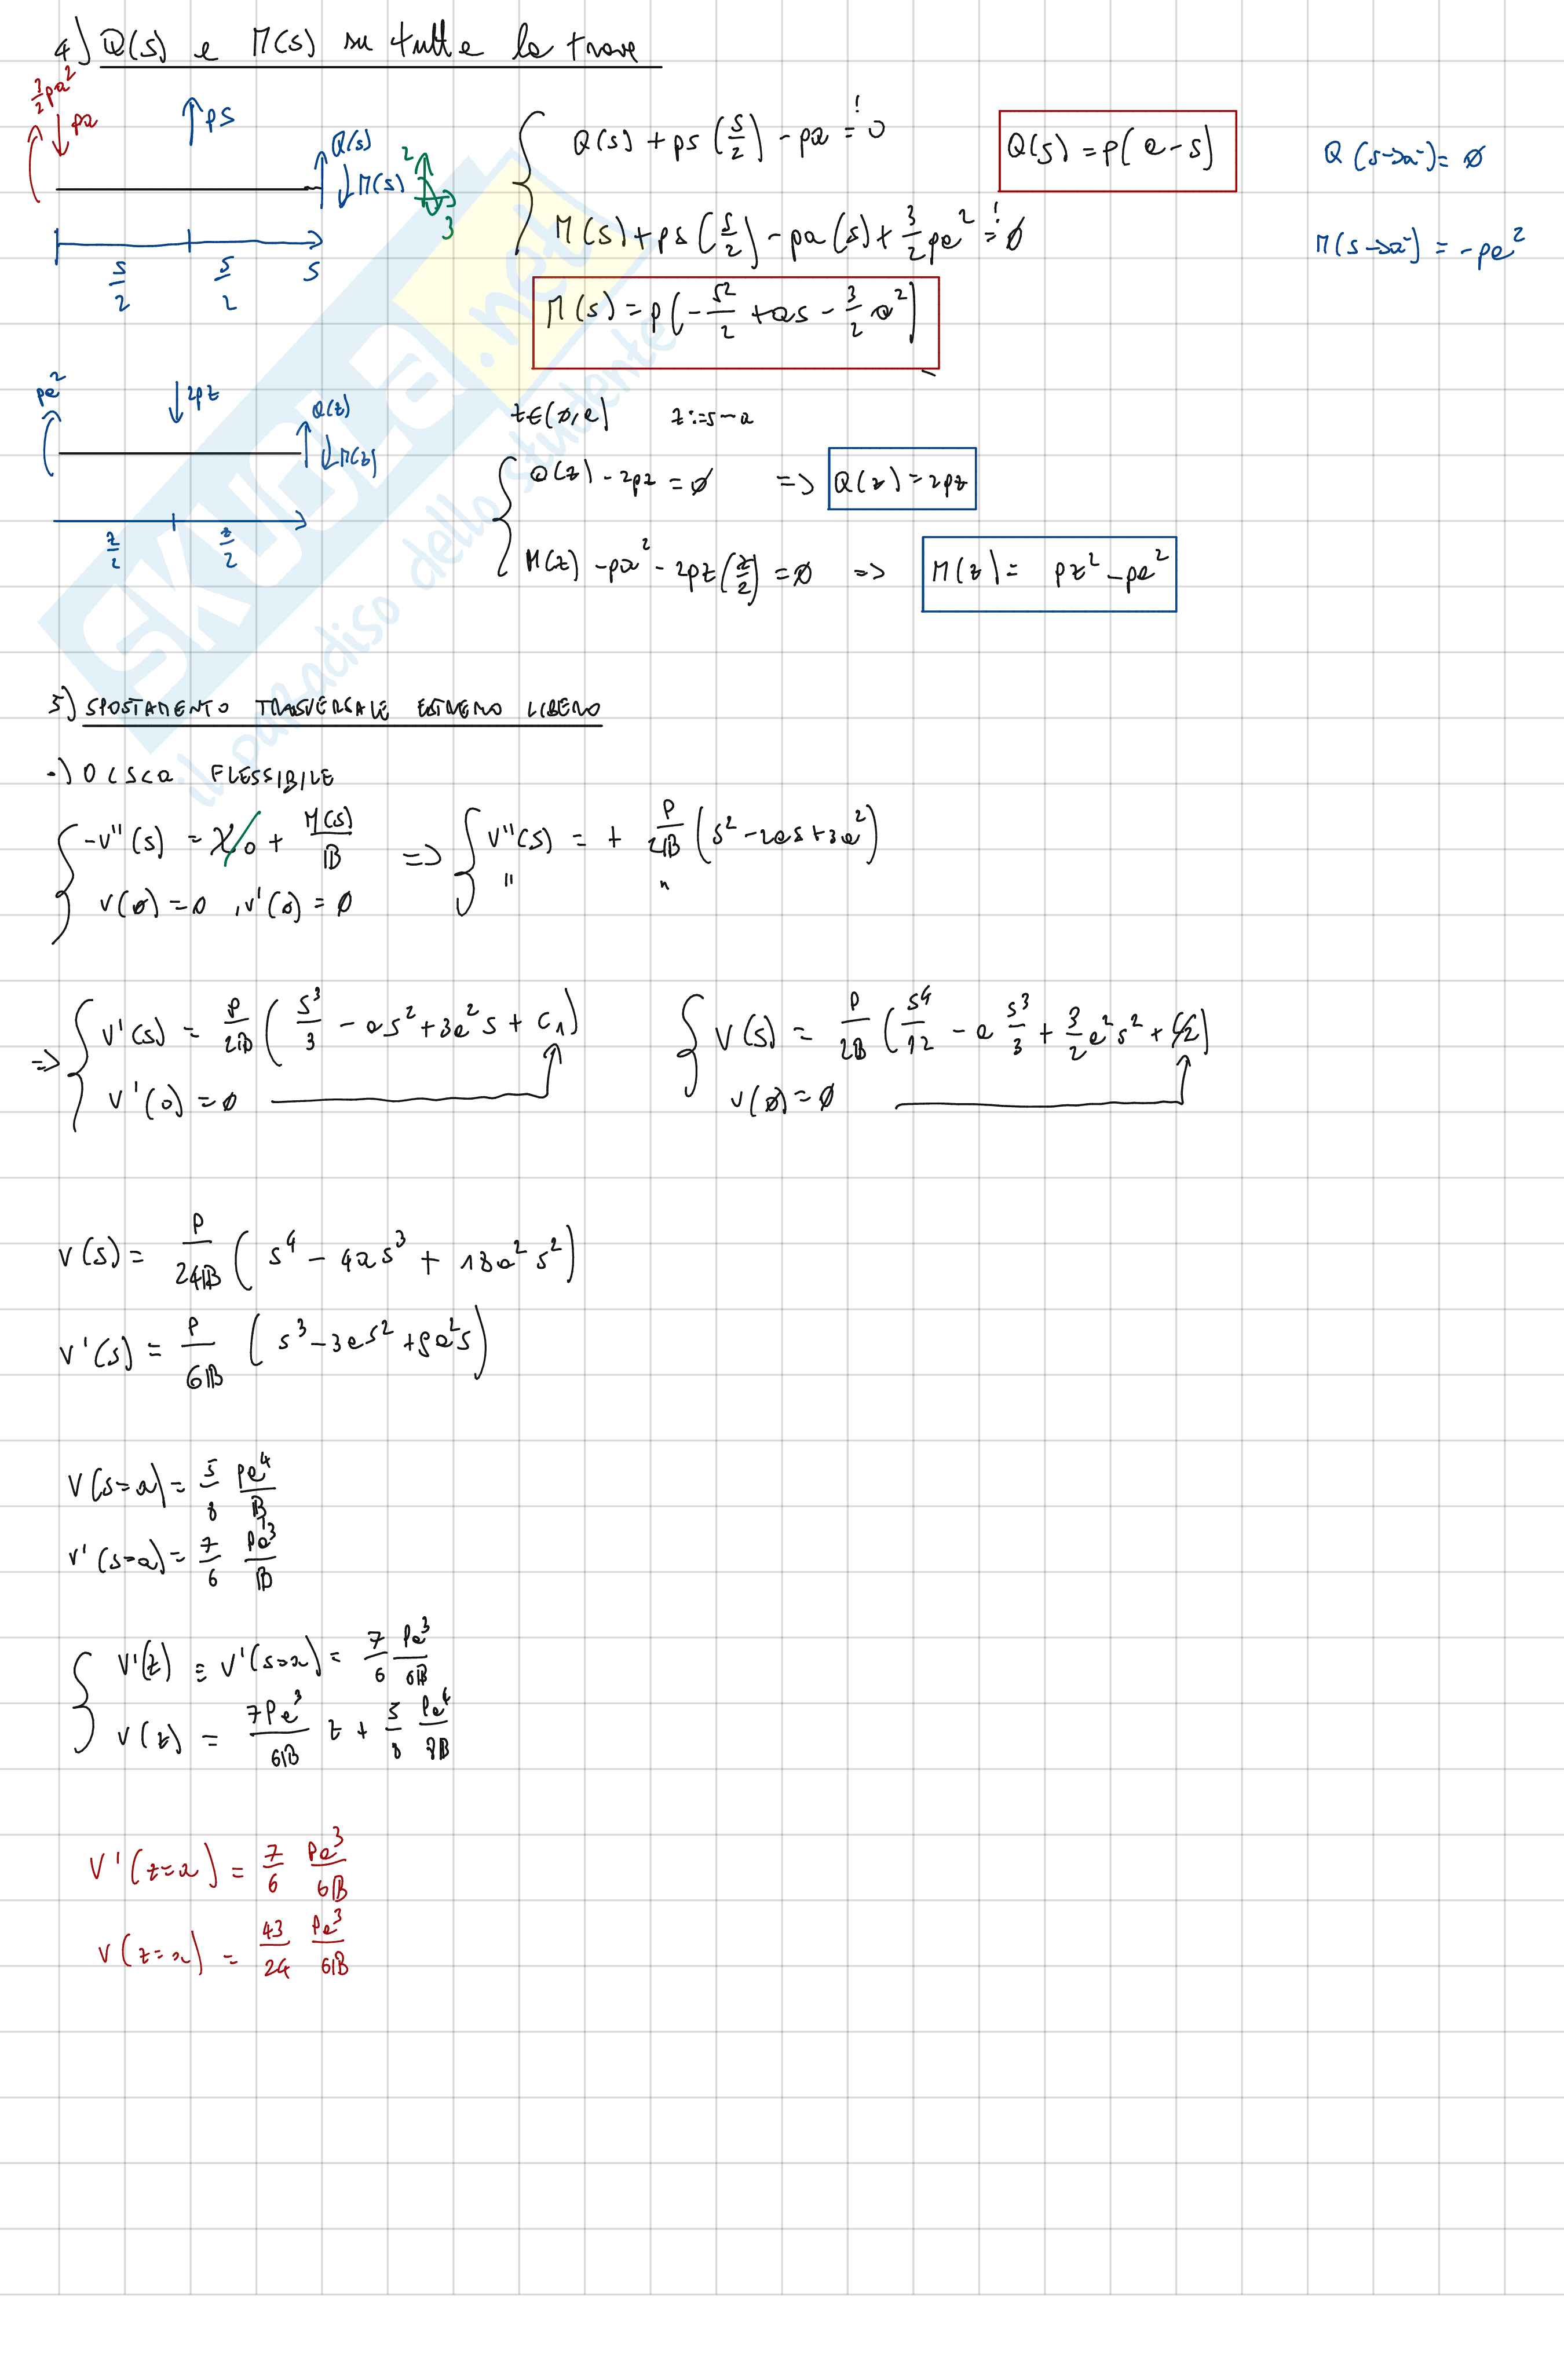 4) Q(s) e M(s) su tutta la trave
3/2 pa² pa ps Q(s) M(s) 2 3
s/2 s/2 s
Q(s) + ps (s/2) - pa =! 0
Q(s) = p(a-s)
Q(s→a⁻) = ∅
M(s) + ps (s/2) - pa(s) + 3/2 pa² =! ∅
M(s→a⁻) = -pa²
M(s) = p(-s²/2 + as - 3/2 a²)
pa² 2pz Q(z) M(z)
z/2 z/2
z∈(∅,a) z:=s-a
Q(z) - 2pz = ∅ => Q(z) = 2pz
M(z) - pa² - 2pz(z/2) = ∅ => M(z) = pz² - pa²
SKUOLA.net
il paradiso dello studente
5) SPOSTAMENTO TRASVERSALE ESTREMO LIBERO
•) 0<s<a FLESSIBILE
-v''(s) = χ0 + M(s)/B => v''(s) = + p/2B (s² - 2as + 3a²)
v(∅) = 0, v'(0) = ∅ " "
=> v'(s) = p/2B (s³/3 - as² + 3a²s + C1)
v'(0) = ∅
v(s) = p/2B (s⁴/12 - a s³/3 + 3/2 a²s² + C2)
v(∅) = ∅
v(s) = p/24B (s⁴ - 4as³ + 18a²s²)
v'(s) = p/6B (s³ - 3as² + 9a²s)
v(s=a) = 5/8 pa⁴/B
v'(s=a) = 7/6 pa³/B
v'(z) ≡ v'(s=a) = 7/6 pa³/6B
v(z) = 7pa³/6B z + 5/8 pa⁴/8B
v'(z=a) = 7/6 pa³/6B
v(z=a) = 43/24 pa³/6B